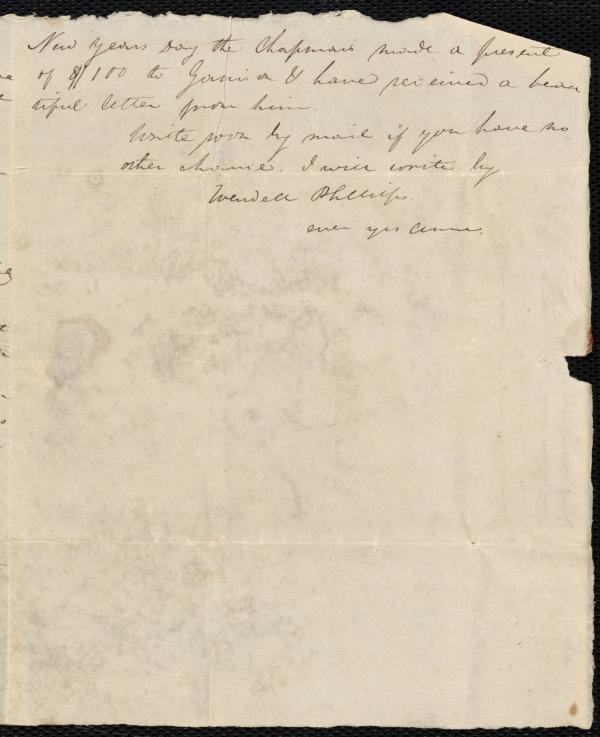 New Years Day the Chapmans made a present
of $100 to Garrison & have received a beau
tiful letter from him.
Write soon by mail if you have no
other chance. I will write by
Wendell Phillips.
ever yrs Anne.